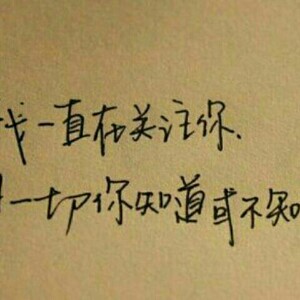 我一直在关注你、
一切你知道或不知